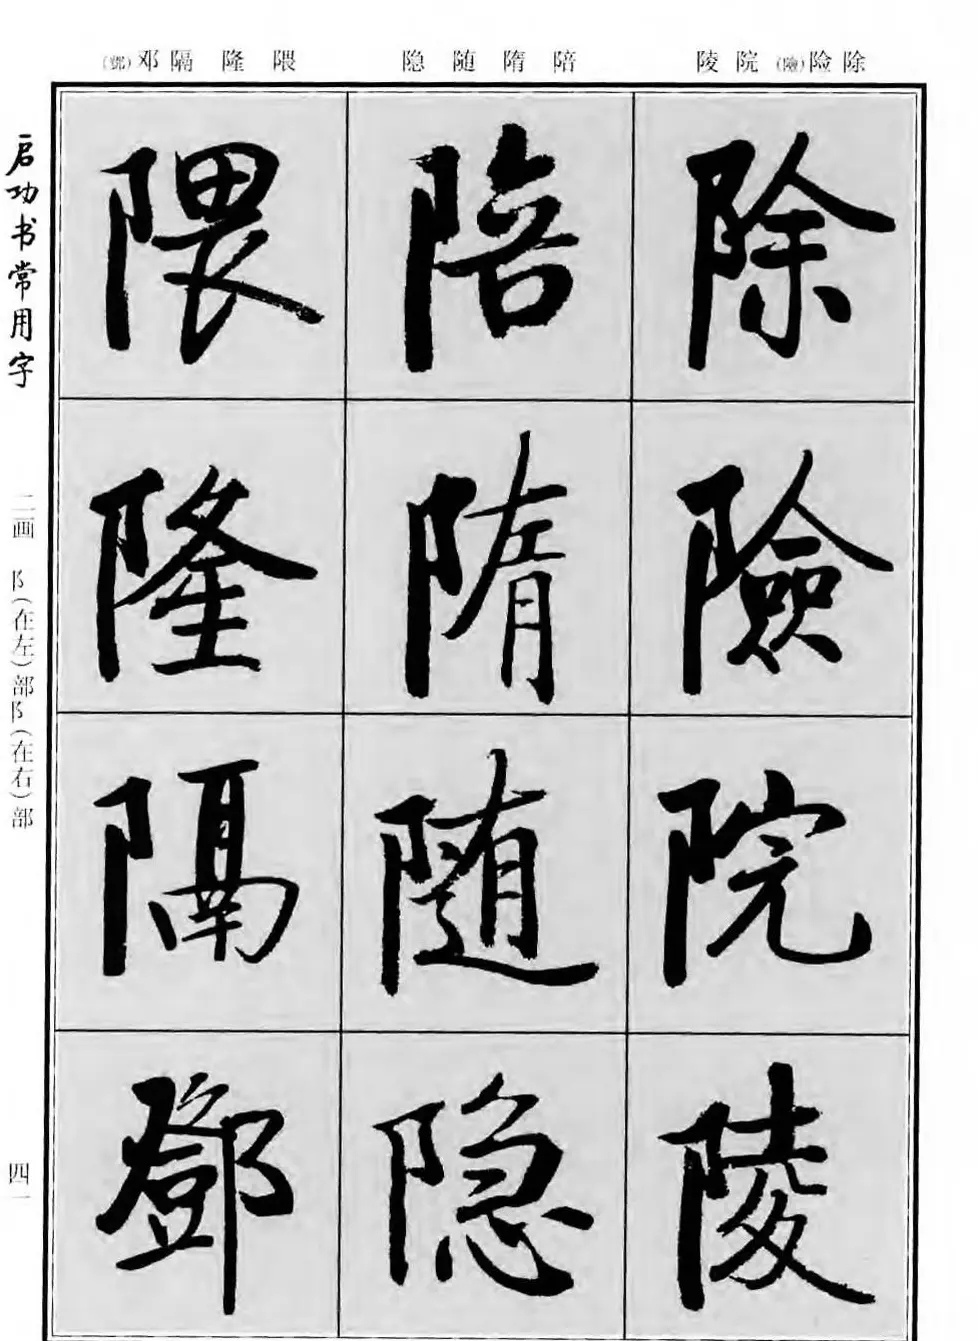 除险(險)院陵
陪隋随隐
隈隆隔邓(鄧)
除
險
院
陵
陪
隋
随
隐
隈
隆
隔
鄧
启功书常用字
二画 阝(在左)部阝(在右)部
四一